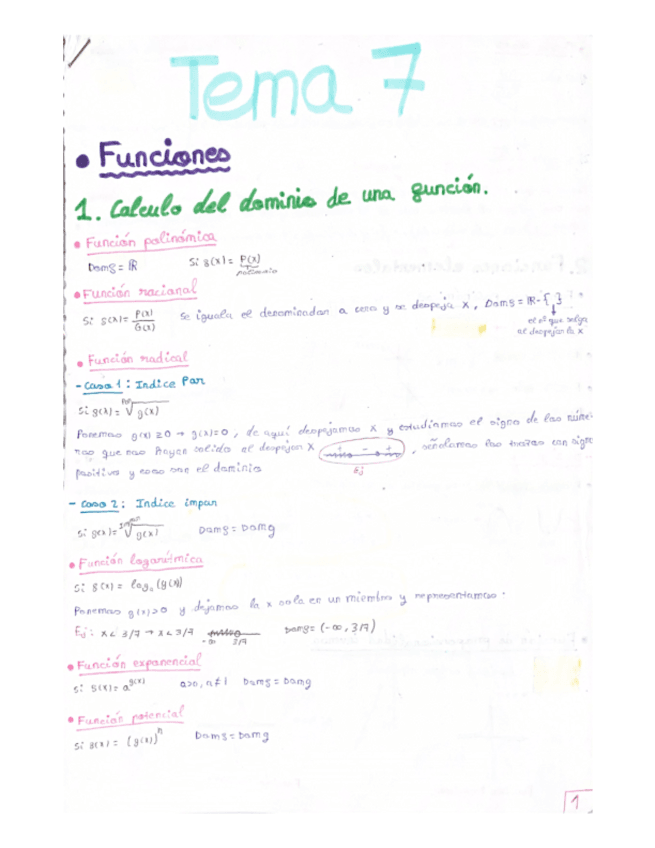 Tema 7
• Funciones
1. Calculo del dominio de una función.
• Función polinómica
Domf = ℝ Si f(x) = P(x)
polinomio
• Función racional
Si f(x) = P(x)/G(x) Se iguala el denominador a cero y se despeja x, Domf = ℝ - { }
el nº que salga
al despejar la x
• Función radical
- Caso 1: Indice Par
Si f(x) = par√g(x)
Ponemos g(x) ≥ 0 → g(x) = 0, de aquí despejamos x y estudiamos el signo de los núme-
ros que nos hayan salido al despejar x + - +, señalamos los trozos con signo
positivo y esos son el dominio
Ej
- Caso 2: Indice impar
Si f(x) = impar√g(x) Domf = Domg
• Función logarítmica
Si f(x) = logₐ (g(x))
Ponemos g(x) > 0 y dejamos la x sola en un miembro y representamos.
Ej: x < 3/7 → x < 3/7 -∞ 3/7 Domf = (-∞, 3/7)
• Función exponencial
Si f(x) = a^g(x) a>0, a≠1 Domf = Domg
• Función potencial
Si f(x) = (g(x))^n Domf = Domg
1